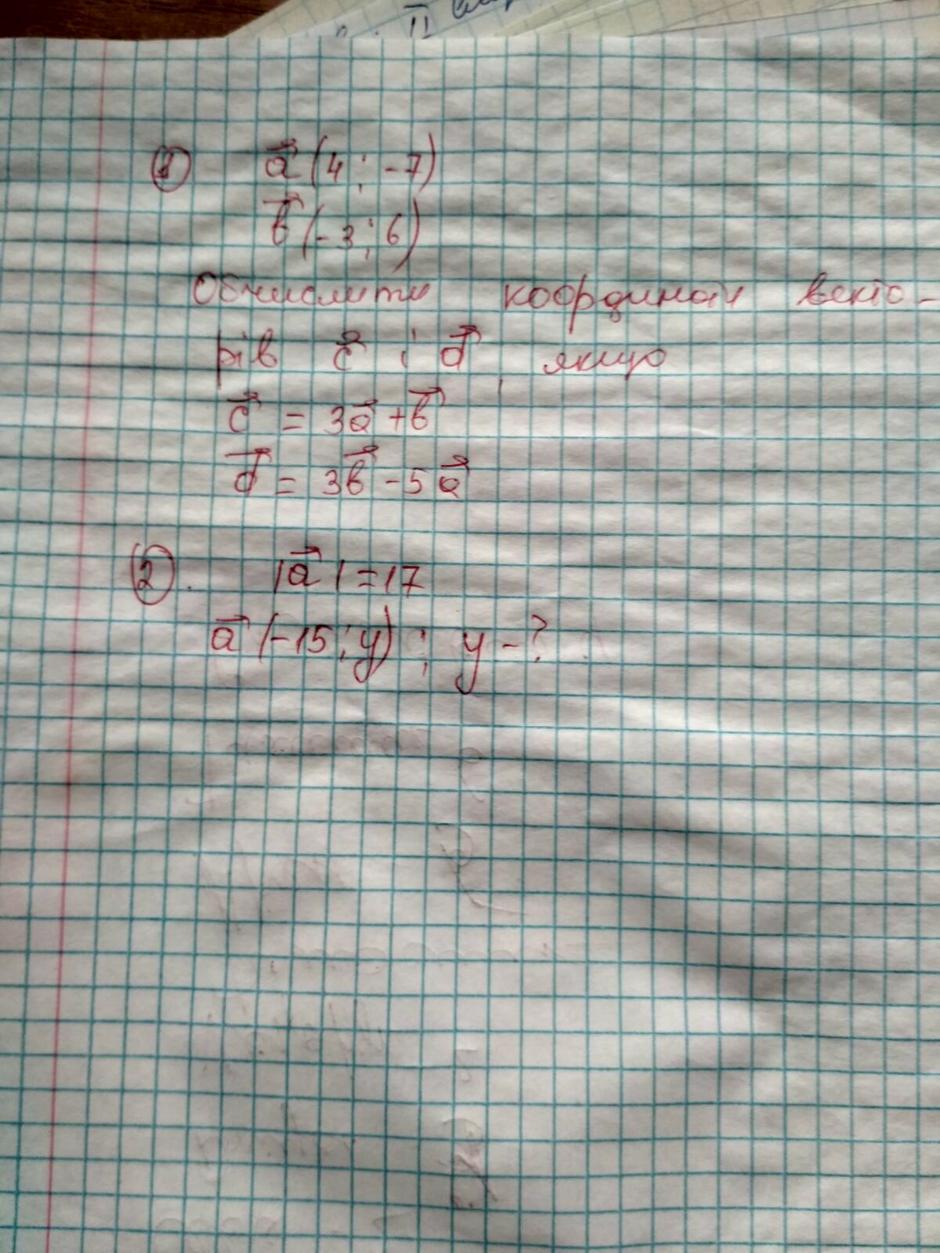 II
① a⃗ (4 ; -7)
b⃗ (-3 ; 6)
Обчислити координати векто-
рів c⃗ і d⃗, якщо
c⃗ = 3a⃗ + b⃗
d⃗ = 3b⃗ - 5a⃗
②. |a⃗| = 17
a⃗ (-15 ; y) ; y - ?